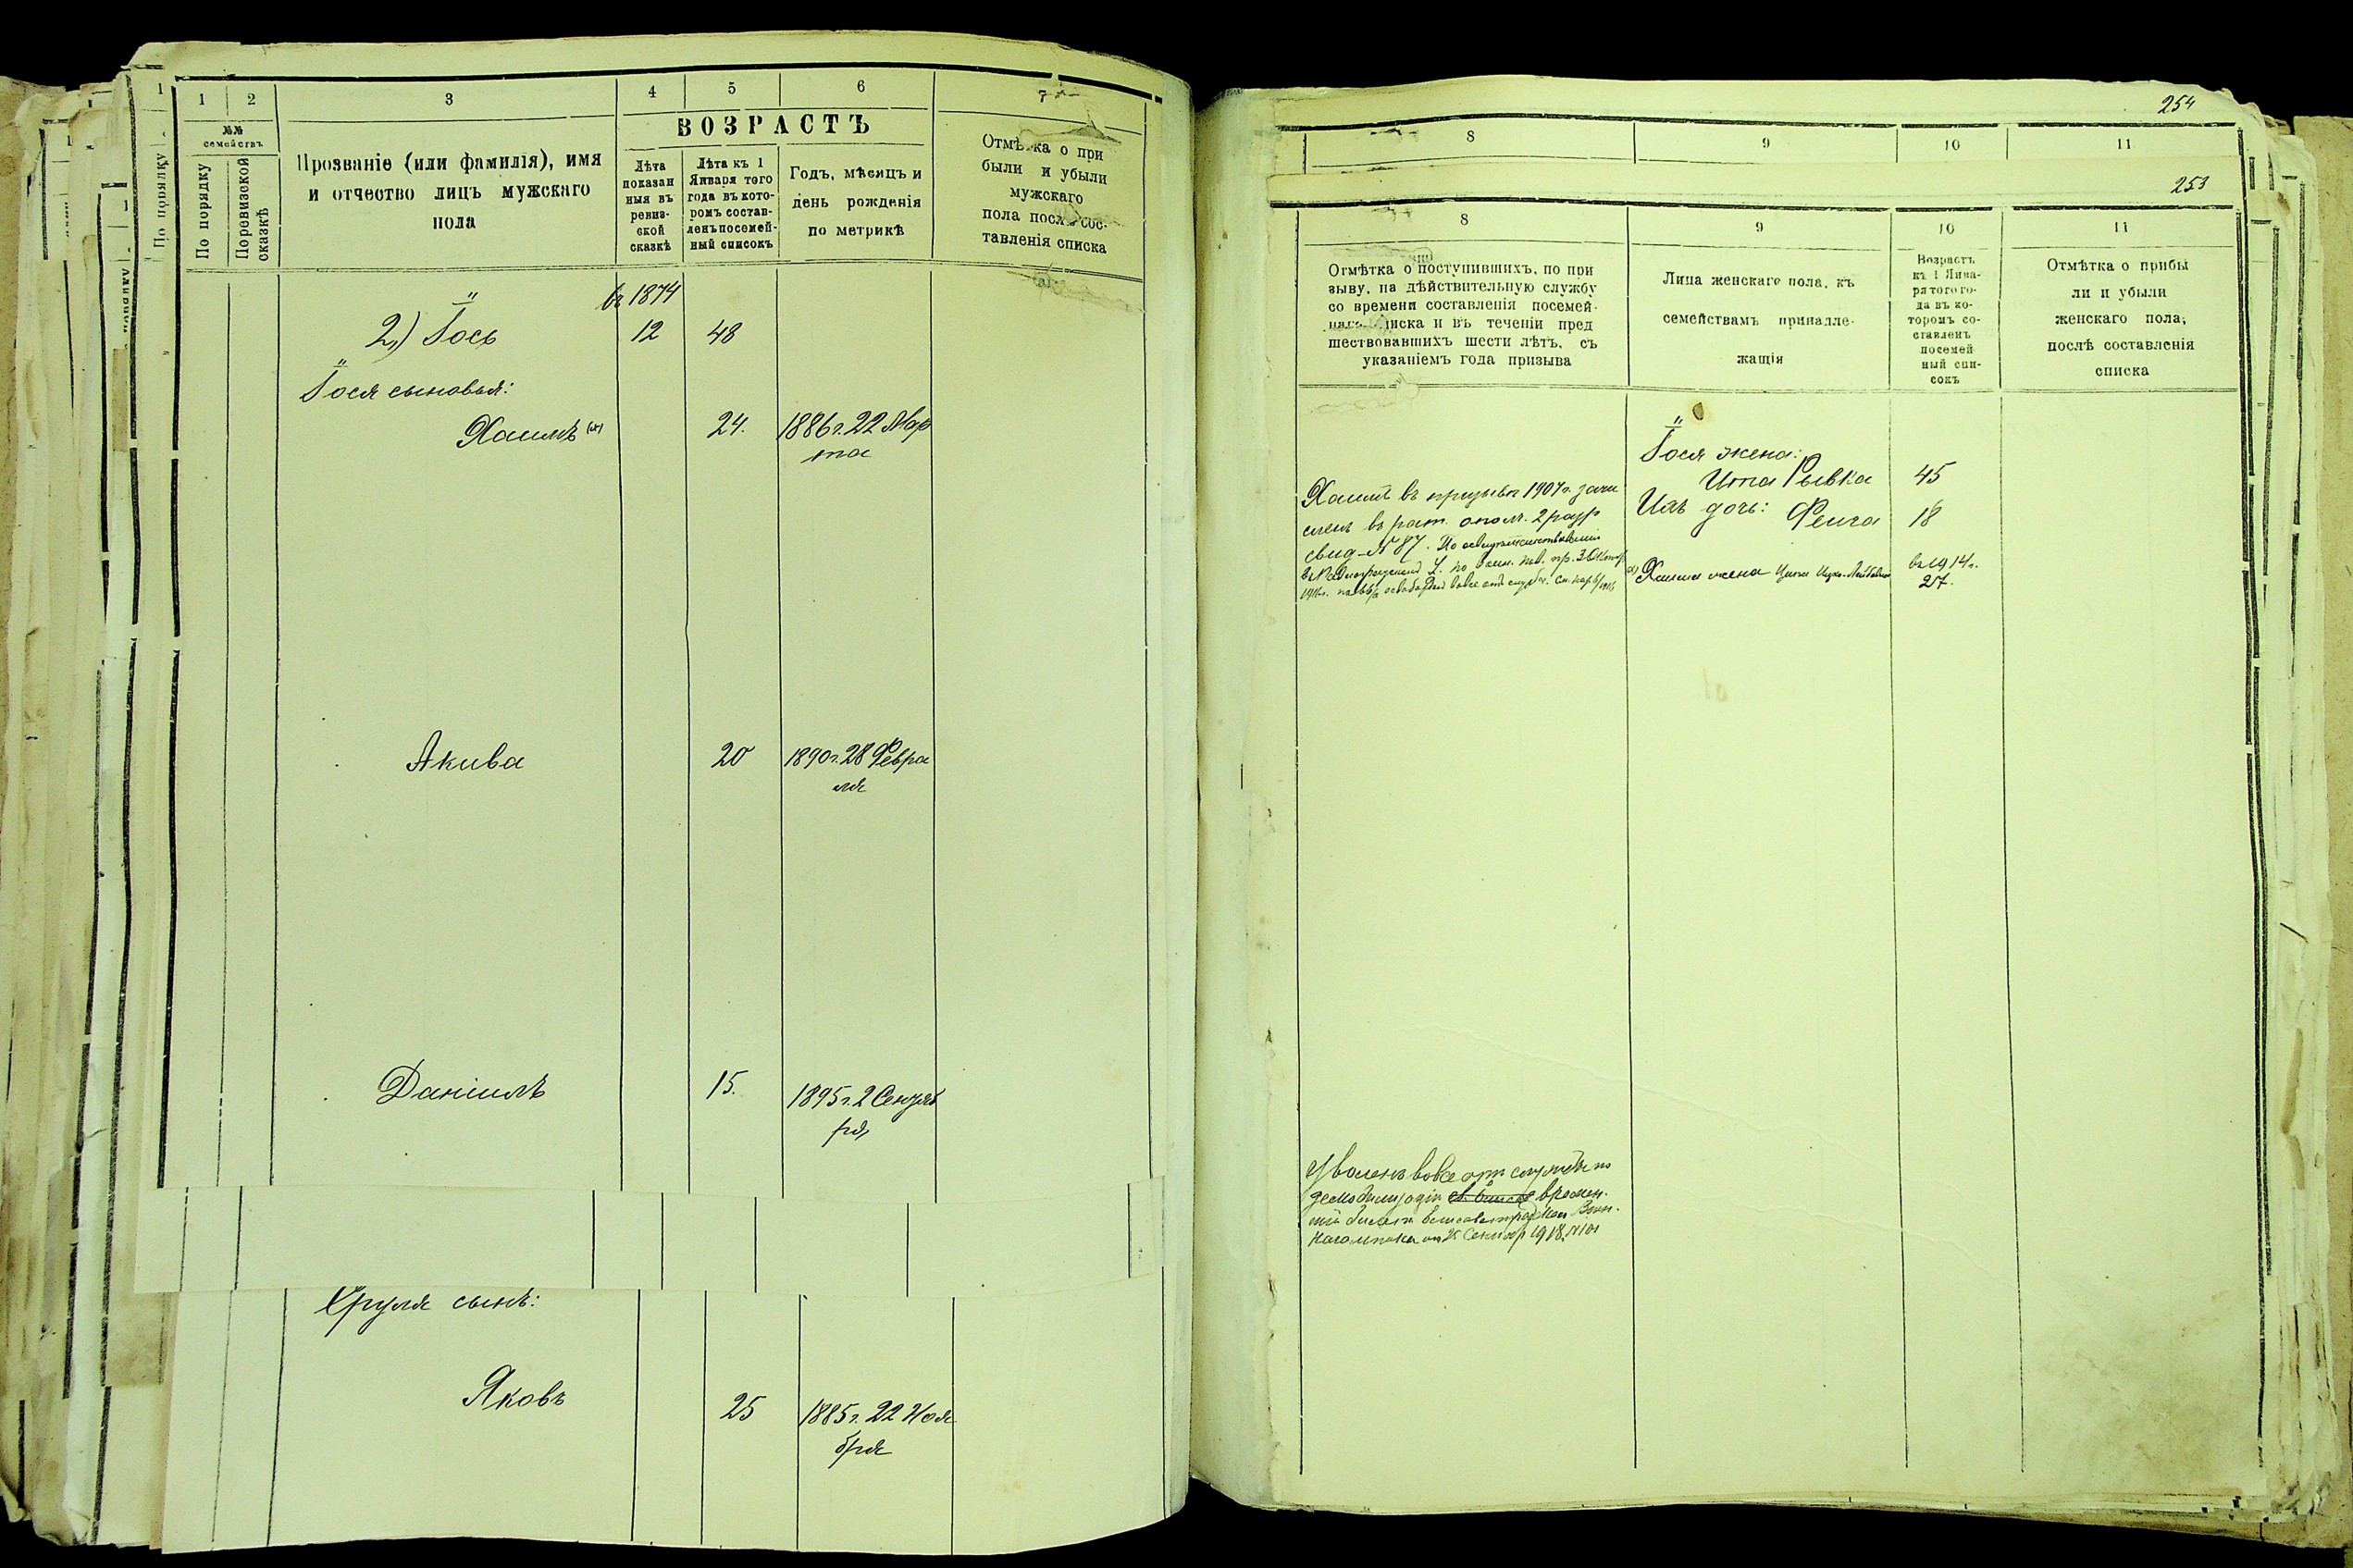 1
1
2
3
4
5
6
7
№№
семействъ
По порядку
По порядку
По ревизской
сказкѣ
Прозваніе (или фамилія), имя
и отчество лицъ мужскаго
пола
ВОЗРАСТЪ
Лѣта
показан
ныя въ
ревиз-
ской
сказкѣ
Лѣта къ 1
Января того
года въ кото-
ромъ состав-
ленъ посемей-
ный списокъ
Годъ, мѣсяцъ и
день рожденія
по метрикѣ
Отмѣтка о при
были и убыли
мужскаго
пола послѣ сос-
тавленія списка
въ 1874
2,) Іось 12 48
Іося сыновья:
Хаимъ (х) 24. 1886 г. 22 Мар
та
Акива 20 1890 г. 28 Февра
ля
Даніилъ 15. 1895 г. 2 Сентяб
ря
Сруля сынъ:
Яковъ 25 1885 г. 22 Ноя
бря
254
8
9
10
11
253
8
9
10
11
Отмѣтка о поступившихъ, по при
зыву, на дѣйствительную службу
со времени составленія посемей-
наго списка и въ теченіи пред
шествовавшихъ шести лѣтъ, съ
указаніемъ года призыва
Лица женскаго пола, къ
семействамъ принадле-
жащія
Возрастъ
къ 1 Янва-
ря того го-
да въ ко-
торомъ со-
ставленъ
посемей
ный спи-
сокъ
Отмѣтка о прибы
ли и убыли
женскаго пола,
послѣ составленія
списка
Іося жена:
Ита Рывка 45
Ихъ дочь: Фейга 18
Хаимъ въ призывъ 1907 г. зачи
сленъ въ рат. ополч. 2 разр
свид. № 87. По освидѣтельствованіи
освобожденъ вовсе отъ службы.
(х) Хаима жена
въ 1914 г.
27.
Уволенъ вовсе отъ службы по
демобилизаціи времен.
ный билетъ
Сентяб 1918